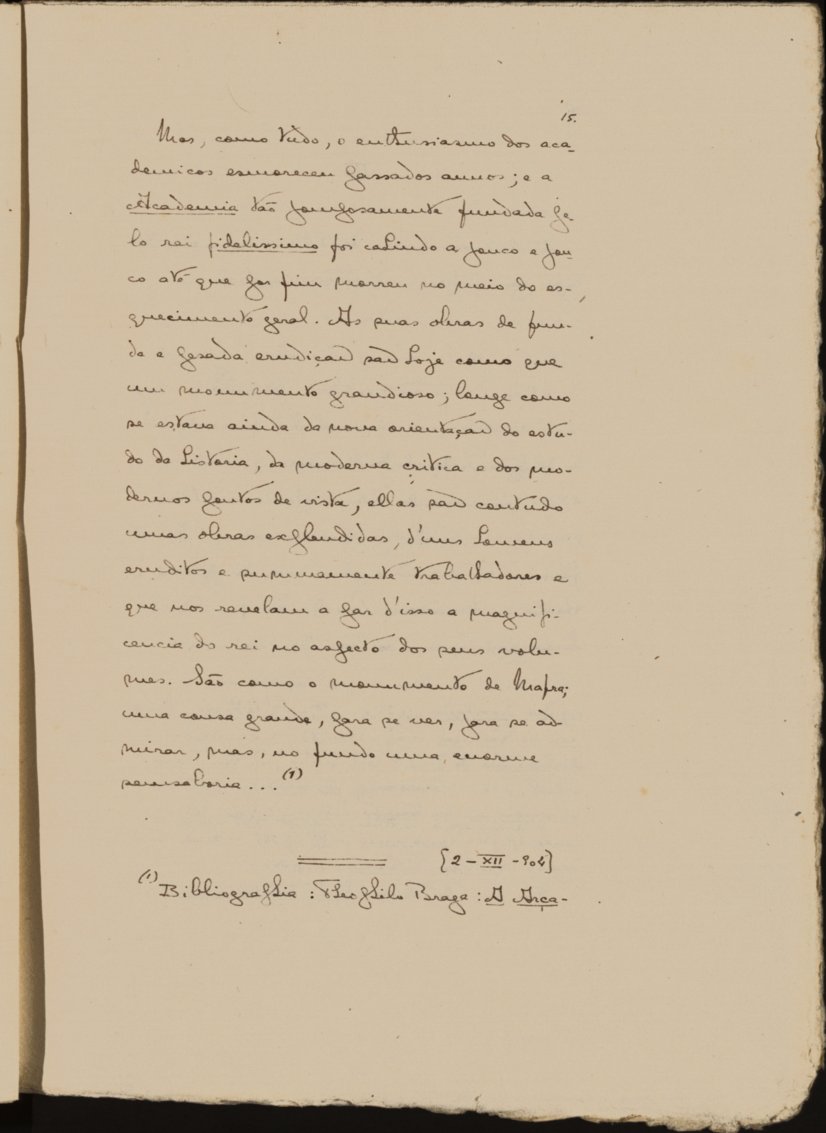 15.
Mas, como tudo, o enthusiasmo dos aca-
demicos esmoreceu passados annos; e a
Academia tão pomposamente fundada pe-
lo rei fidelissimo foi cahindo a pouco e pou-
co até que por fim morreu no meio do es-
quecimento geral. As suas obras de fun-
da e pesada erudição são hoje como que
um monumento grandioso; longe como
se estava ainda da nova orientação do estu-
do da historia, da moderna critica e dos mo-
dernos pontos de vista, ellas são contudo
umas obras explendidas, d'uns homens
eruditos e summamente trabalhadores e
que nos revelam a par d'isso a magnifi-
cencia do rei no aspecto dos seus volu-
mes. São como o monumento de Mafra;
uma cousa grande, para se ver, para se ad-
mirar, mas, no fundo uma, enorme
semsaboria... (1)
[2-XII-904]
(1) Bibliographia: Theophilo Braga: A Arca-